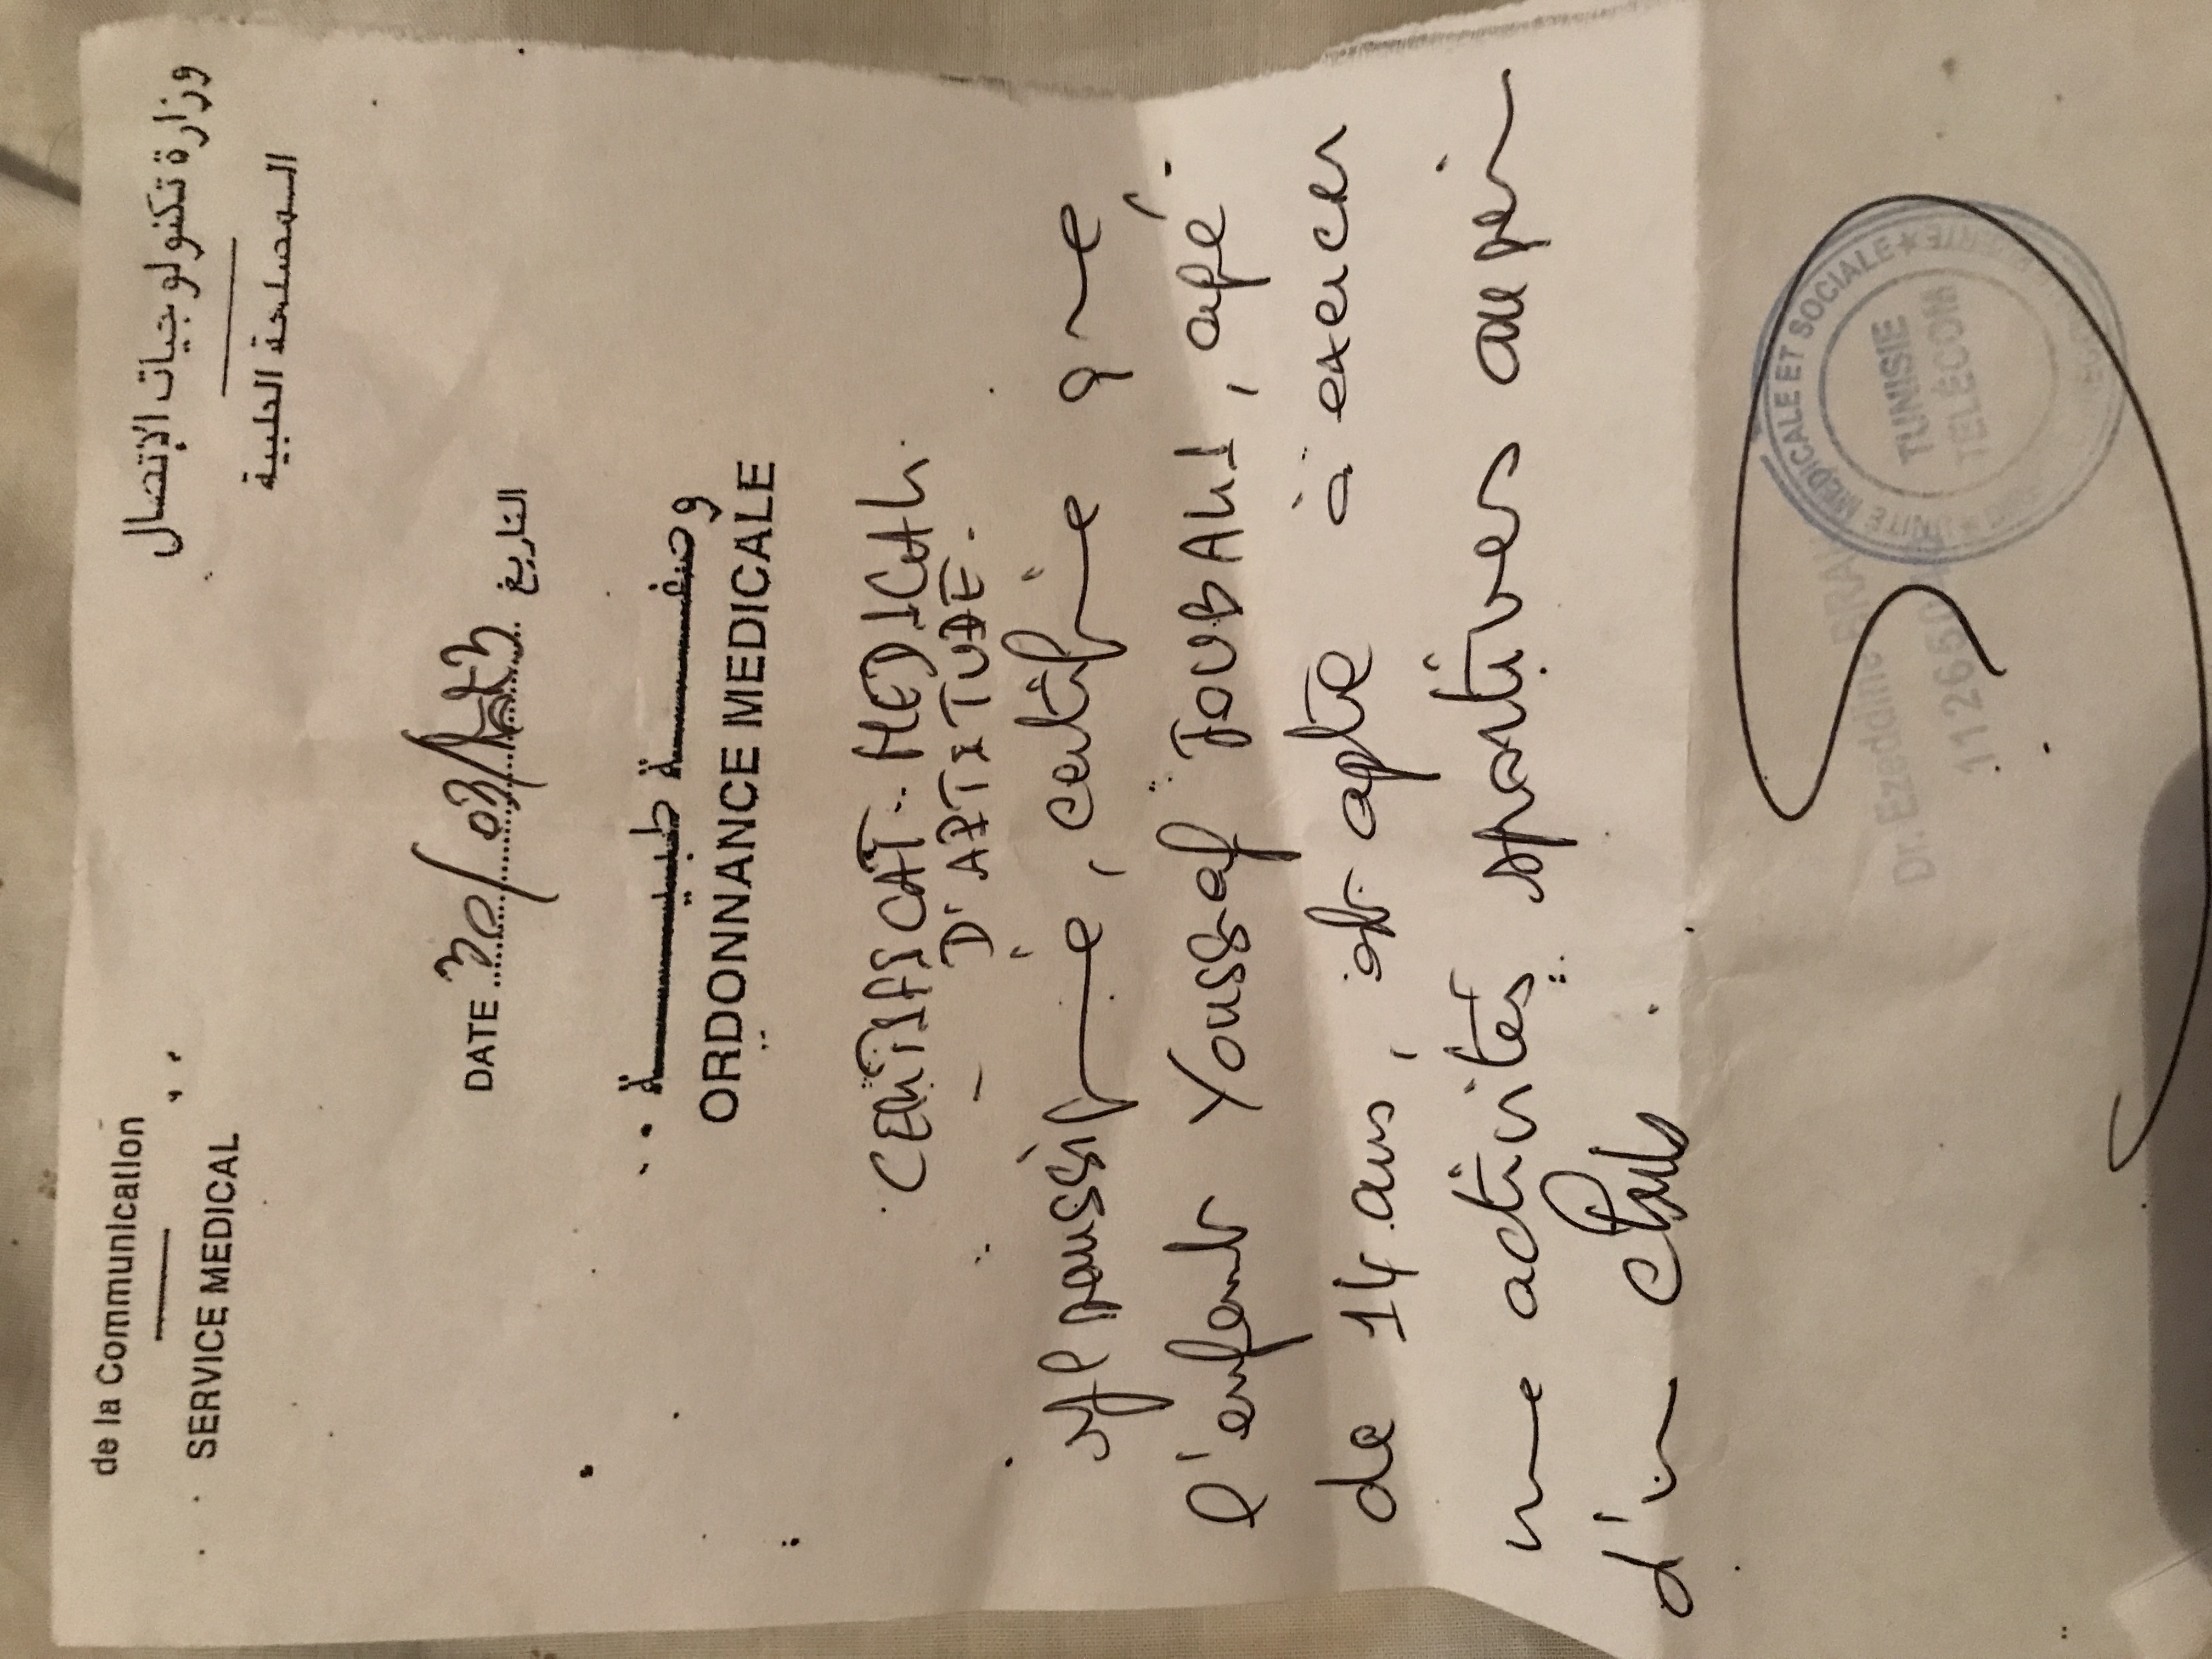 de la Communication
SERVICE MEDICAL
وزارة تكنولوجيات الإتصال
المصلحة الطبية
DATE 30/03/ التاريخ
وصفة طبية
ORDONNANCE MEDICALE
CERTIFICAT MEDICAL
D'APTITUDE.
, certifie que
l'enfant Youssef JOUBAHI, agé
de 14 ans, est apte à exercer
une activités sportives au sein
d'un Club.
MEDICALE ET SOCIALE ★
TUNISIE
TELECOM
Dr. Ezeddine